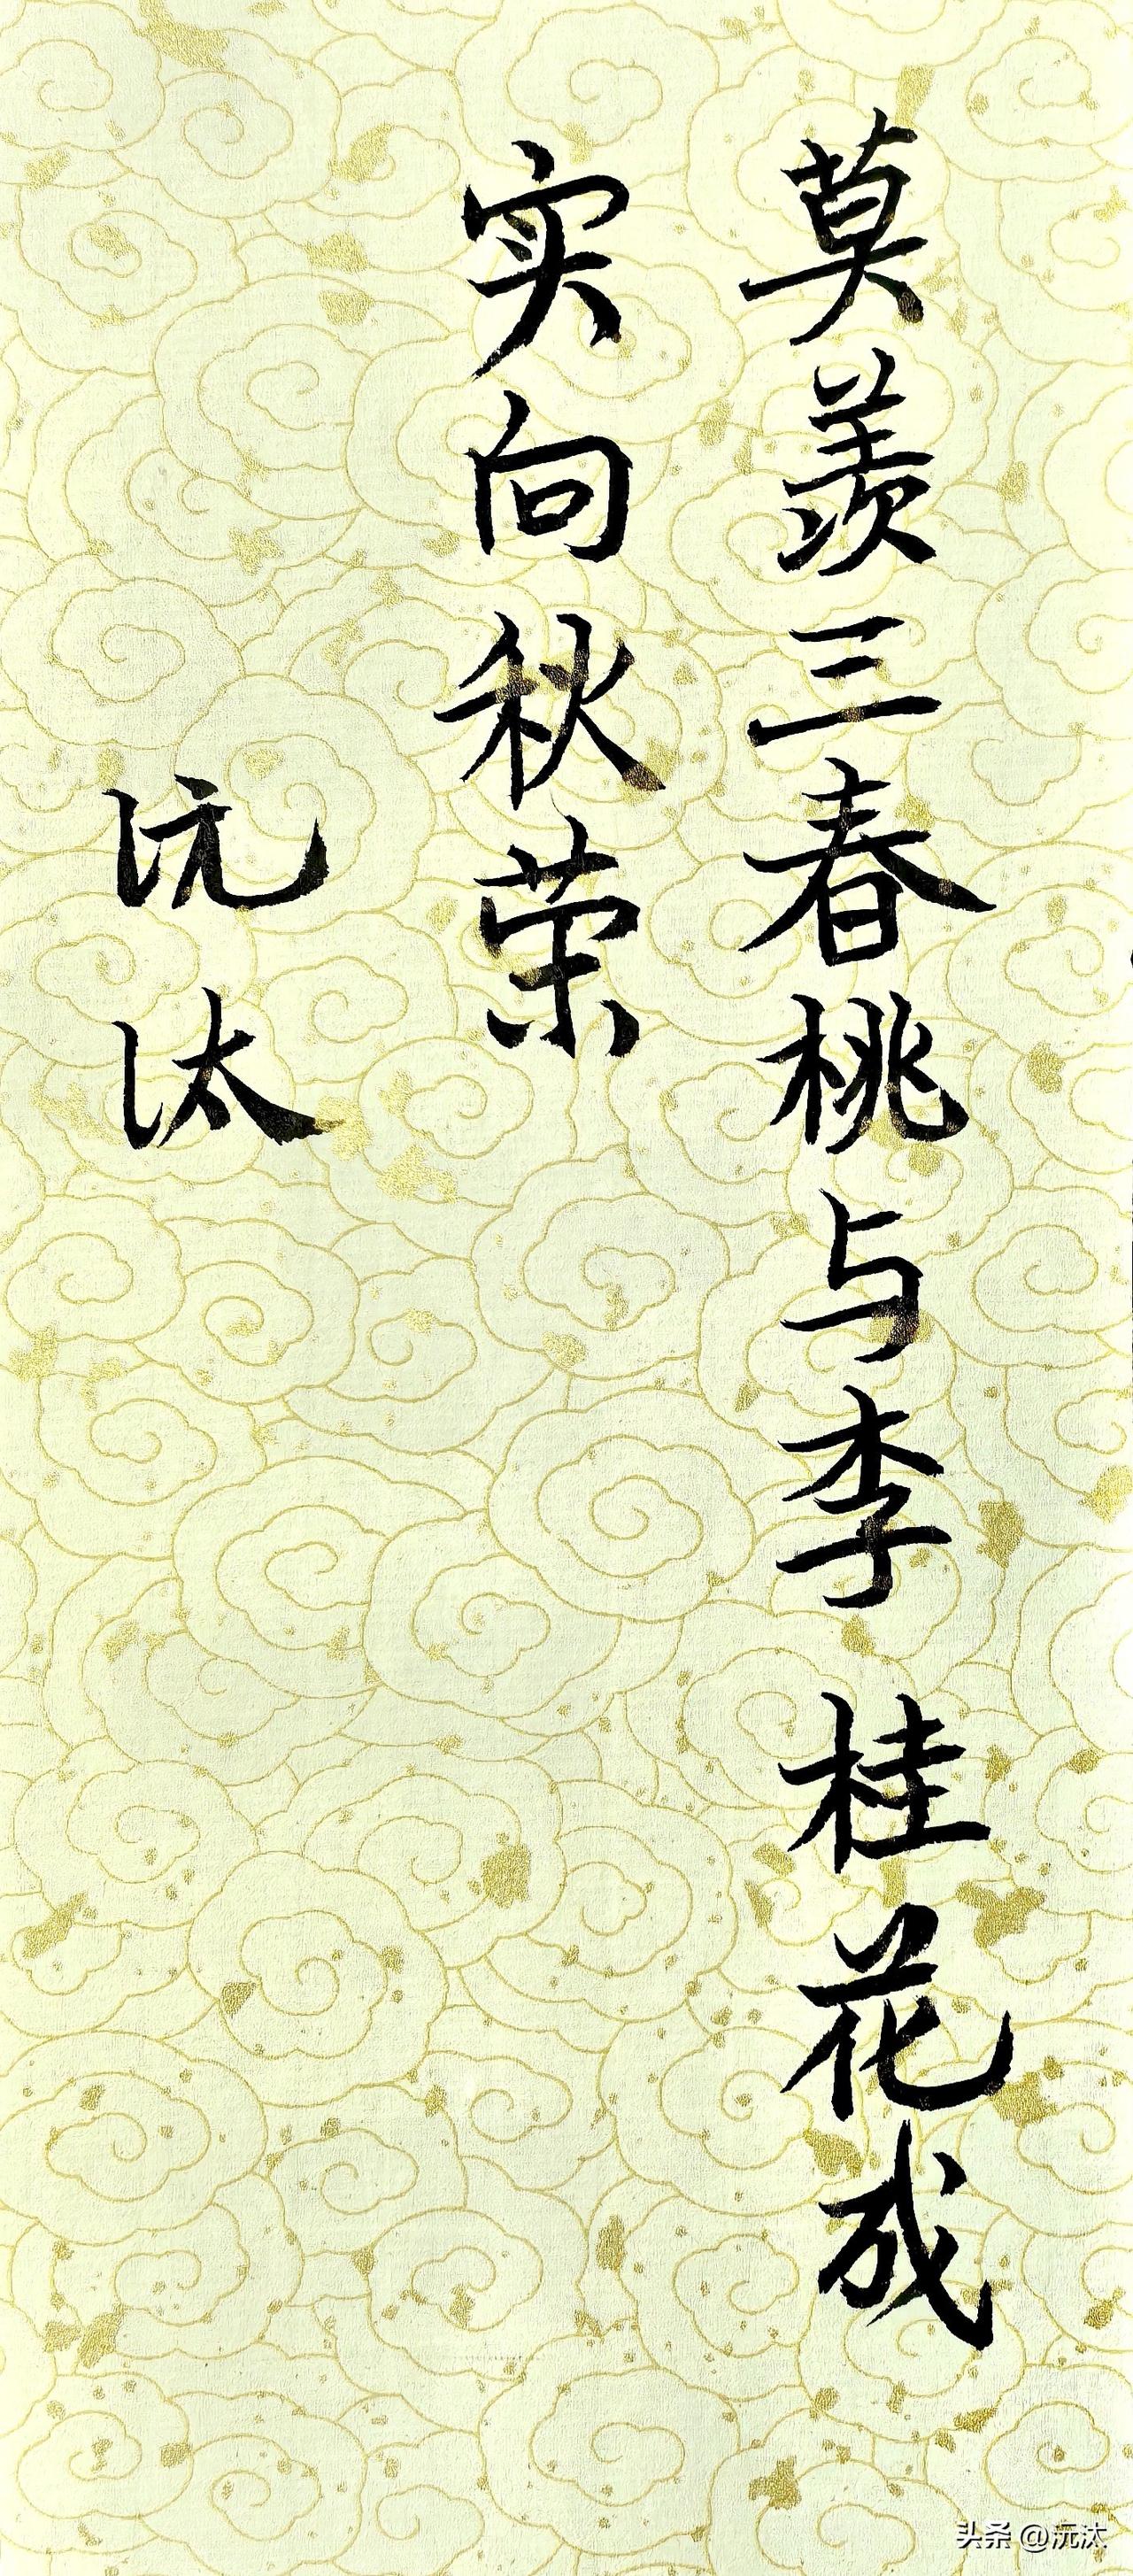 莫羡三春桃与李 桂花成
实向秋荣
沅汰
头条 @沅汰